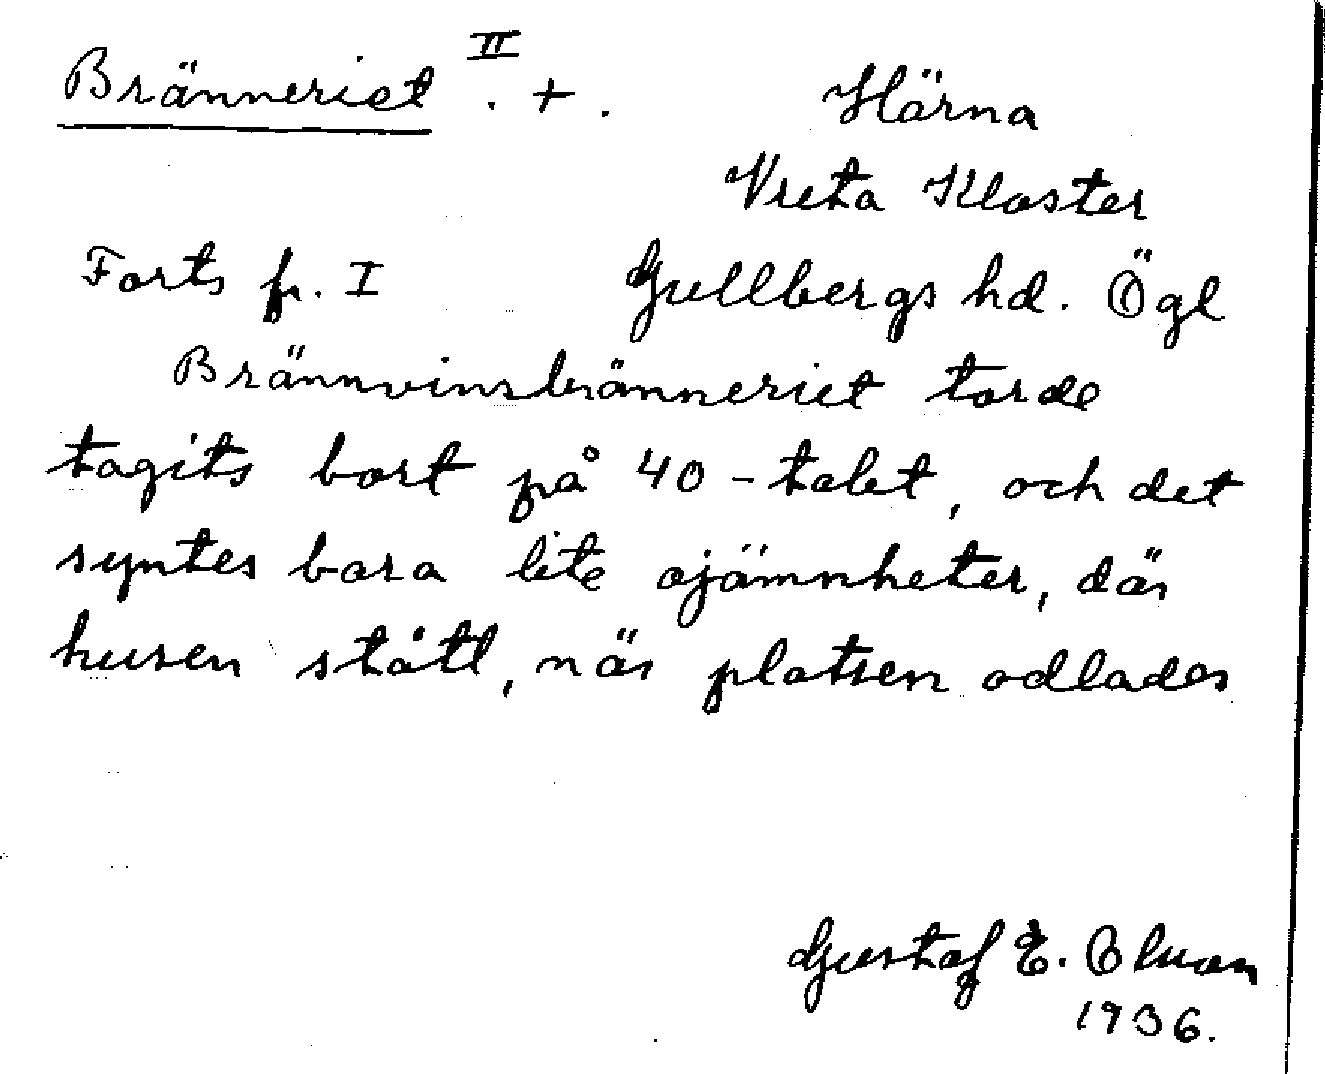 Bränneriet II . + . Härna
Vreta Kloster
Forts fr. I Gullbergs hd. Ögl
Brännvinsbränneriet torde
tagits bort på 40-talet, och det
syntes bara lite ojämnheter, där
husen stått, när platsen odlades
Gustaf E.
1936.